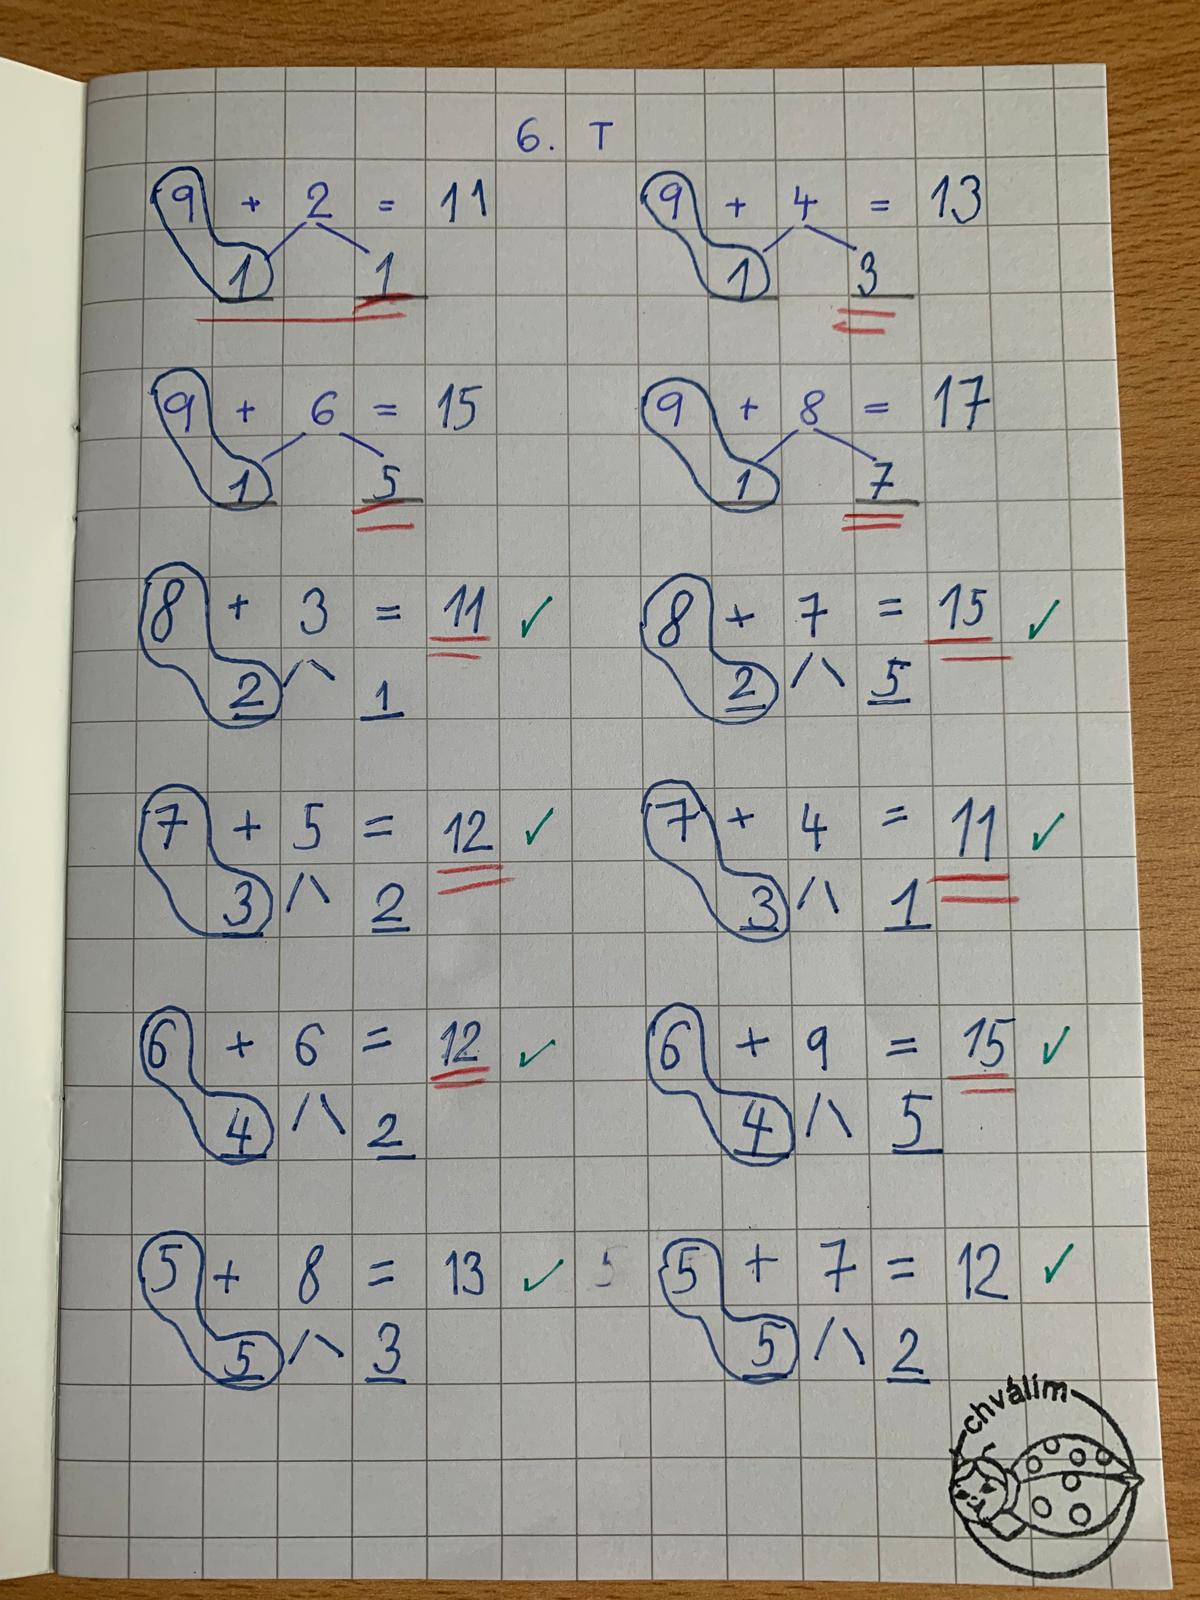 6. T
9 + 2 = 11 9 + 4 = 13
1 1 1 3
9 + 6 = 15 9 + 8 = 17
1 5 1 7
8 + 3 = 11 ✓ 8 + 7 = 15 ✓
2 1 2 5
7 + 5 = 12 ✓ 7 + 4 = 11 ✓
3 2 3 1
6 + 6 = 12 ✓ 6 + 9 = 15 ✓
4 2 4 5
5 + 8 = 13 ✓ 5 5 + 7 = 12 ✓
5 3 5 2
chválím